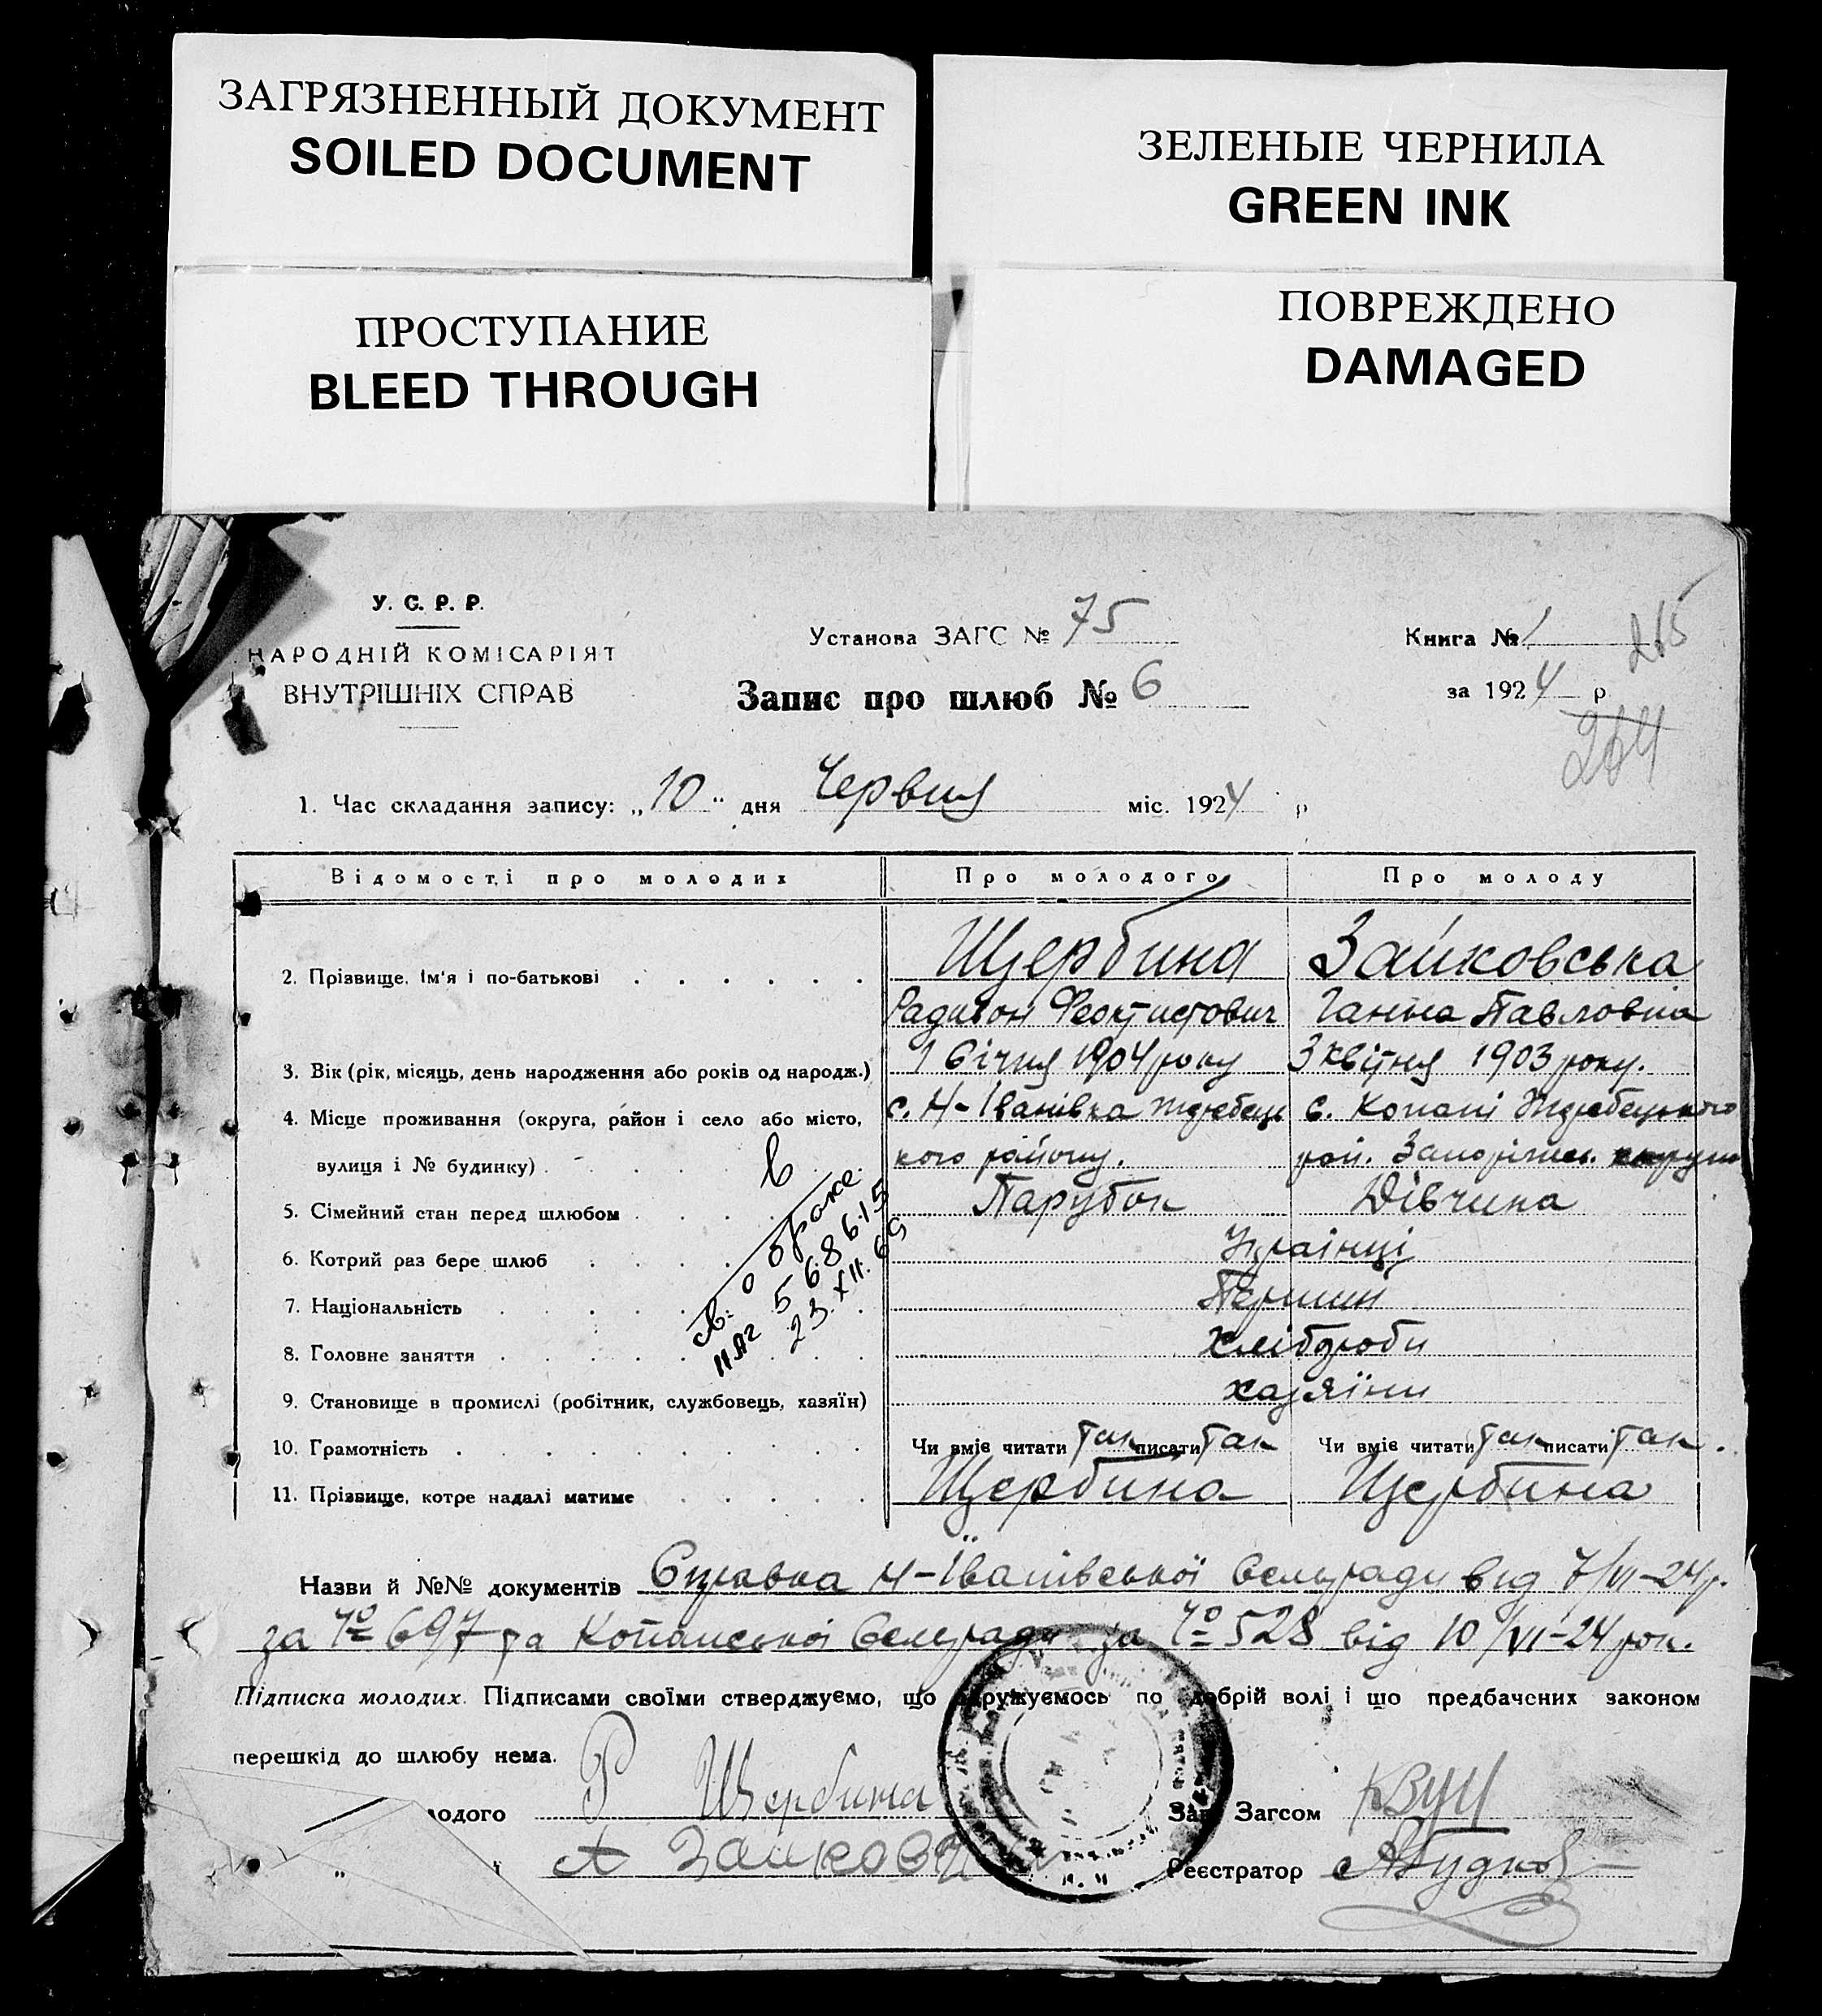 ЗАГРЯЗНЕННЫЙ ДОКУМЕНТ
SOILED DOCUMENT
ЗЕЛЕНЫЕ ЧЕРНИЛА
GREEN INK
ПРОСТУПАНИЕ
BLEED THROUGH
ПОВРЕЖДЕНО
DAMAGED
У. С. Р. Р.
НАРОДНІЙ КОМІСАРІЯТ
ВНУТРІШНІХ СПРАВ
Установа ЗАГС № 75
Запис про шлюб № 6
Книга № 1
265
за 1924 р
264
1. Час складання запису: „10" дня Червня міс. 1924 р
Відомості про молодих Про молодого Про молоду
2. Прізвище, ім'я і по-батькові Щербина Зайковська
Радивон Феоктистович Ганна Павловна
3. Вік (рік, місяць, день народження або років од народж.) 1 Січня 1904 року 3 Квітня 1903 року.
4. Місце проживання (округа, район і село або місто, с. Н-Іванівка Жеребець с. Копані Жеребецького
вулиця і № будинку) кого району. рай. Запоріжс. округи
5. Сімейний стан перед шлюбом Парубок Дівчина
6. Котрий раз бере шлюб Українці
7. Національність Перший
8. Головне заняття Хлібороби
9. Становище в промислі (робітник, службовець, хазяїн) хазяїни
10. Грамотність Чи вміє читати так писати так Чи вміє читати так писати так.
11. Прізвище, котре надалі матиме Щербина Щербина
св. о браке
568615
23.XII.69
Назви й №№ документів Справка Н-Іванівської Сельради від 7/VI-24р.
за № 697 та Копанської Сельради за № 528 від 10/VI-24 рок.
Підписка молодих. Підписами своїми стверджуємо, що одружуємось по добрій волі і що предбачених законом
перешкід до шлюбу нема.
лодого Р Щербина Зав. Загсом
„ А Зайковс Реєстратор